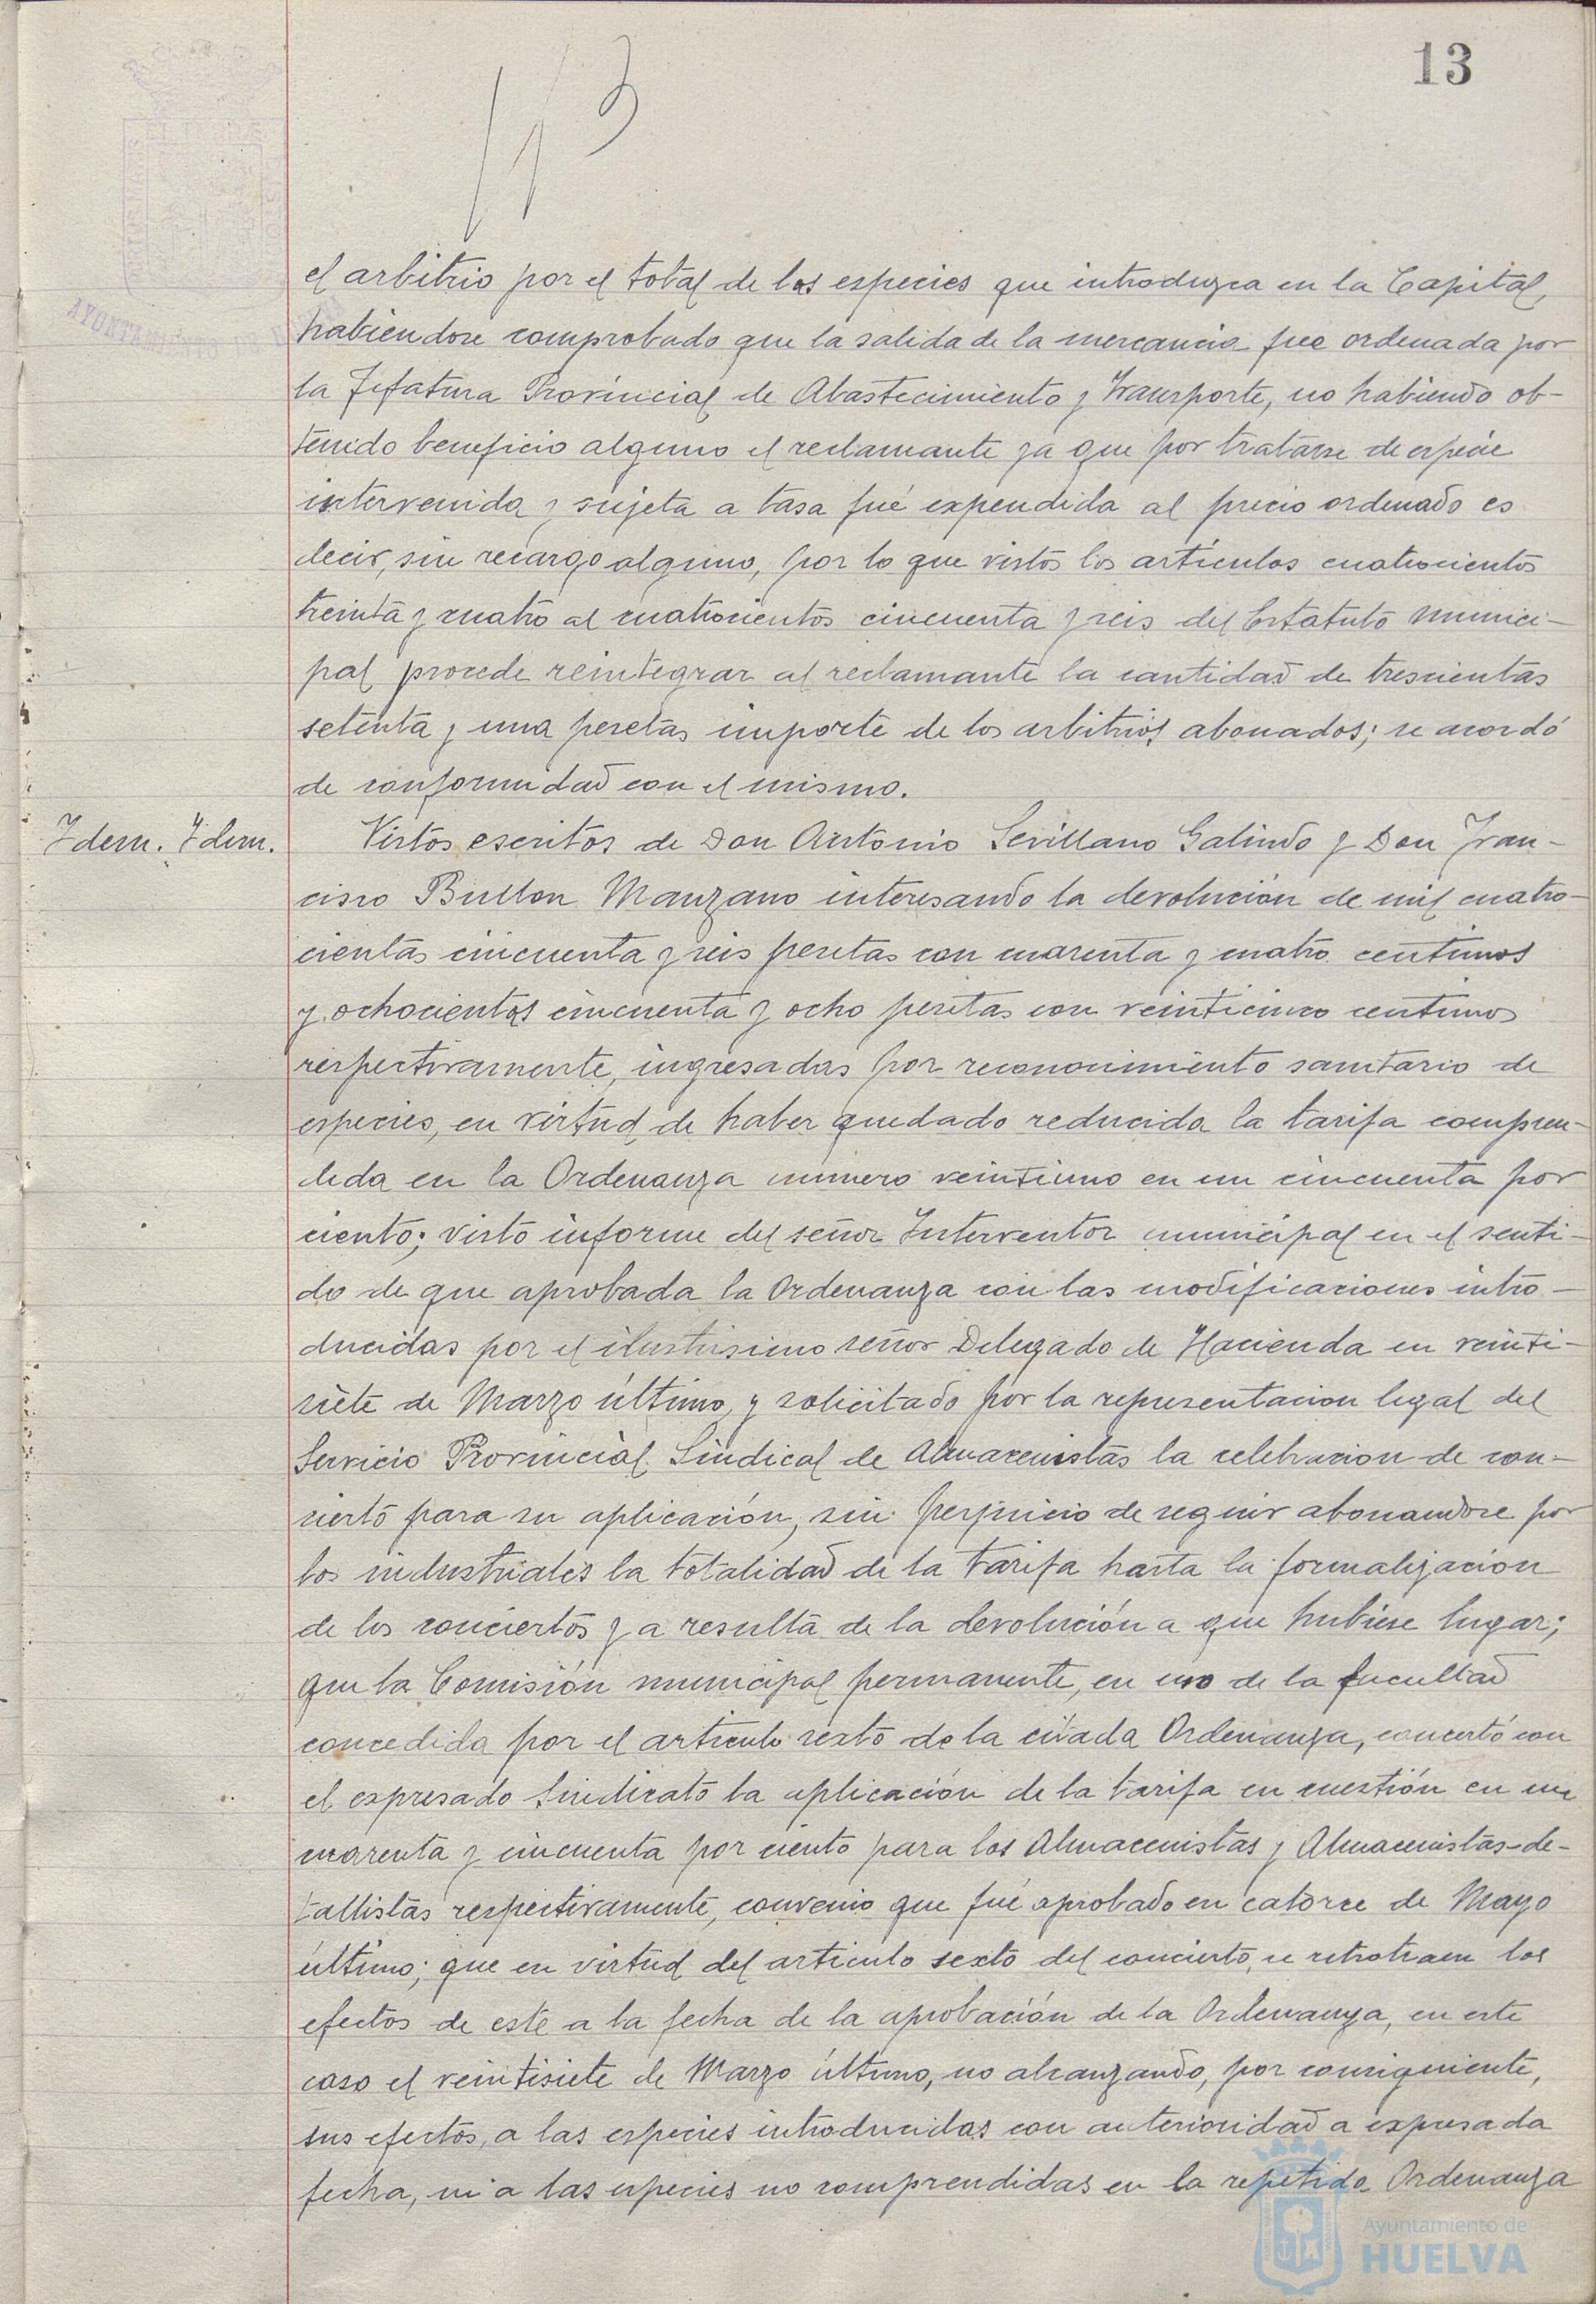 13
el arbitrio por el total de las especies que introduzca en la Capital,
habiendose comprobado que la salida de la mercancia fue ordenada por
la Jefatura Provincial de Abastecimiento y Transporte, no habiendo ob-
tenido beneficio alguno el reclamante ya que por tratarse de especie
intervenida y sujeta a tasa fué expendida al precio ordenado es
decir, sin recargo alguno, por lo que vistos los artículos cuatrocientos
treinta y cuatro al cuatrocientos cincuenta y seis del Estatuto munici-
pal procede reintegrar al reclamante la cantidad de trescientas
setenta y una pesetas importe de los arbitrios abonados; se acordó
de conformidad con el mismo.
Idem. Idem.
Vistos escritos de Don Antonio Sevillano Galindo y Don Fran-
cisco Bullon Manzano interesando la devolución de mil cuatro-
cientas cincuenta y seis pesetas con cuarenta y cuatro centimos
y ochocientas cincuenta y ocho pesetas con veinticinco centimos
respectivamente, ingresadas por reconocimiento sanitario de
especies, en virtud de haber quedado reducida la tarifa compren-
dida en la Ordenanza numero veintiuno en un cincuenta por
ciento; visto informe del señor Interventor municipal en el senti-
do de que aprobada la Ordenanza con las modificaciones intro-
ducidas por el ilustrisimo señor Delegado de Hacienda en veinti-
siete de Marzo último, y solicitado por la representacion legal del
Servicio Provincial Sindical de Almacenistas la celebracion de con-
cierto para su aplicación, sin perjuicio de seguir abonandose por
los industriales la totalidad de la tarifa hasta la formalizacion
de los conciertos y a resulta de la devolución a que hubiese lugar;
que la Comisión municipal permanente, en uso de la facultad
concedida por el artículo sexto de la citada Ordenanza, concertó con
el expresado Sindicato la aplicación de la tarifa en cuestión en un
cuarenta y cincuenta por ciento para los Almacenistas y Almacenistas-de-
tallistas respectivamente, convenio que fué aprobado en catorce de Mayo
último; que en virtud del articulo sexto del concierto, se retrotraen los
efectos de este a la fecha de la aprobación de la Ordenanza, en este
caso el veintisiete de Marzo último, no alcanzando, por consiguiente,
sus efectos, a las especies introducidas con anterioridad a expresada
fecha, ni a las especies no comprendidas en la repetida Ordenanza
Ayuntamiento de
HUELVA